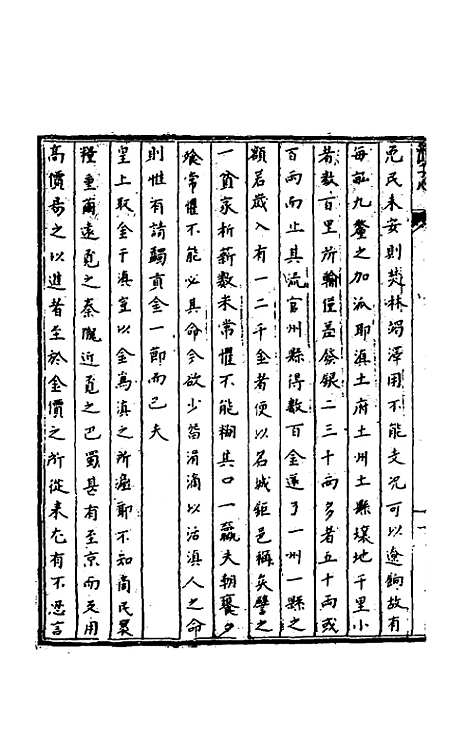 危民未安則焚林竭澤用不能支况可以遼餉故有
每畝九釐之加派耶滇土府土州土縣壤地千里小
者數百里所輸僅差發銀二三十兩多者五十兩或
百兩而止其流官州縣得數百金遂了一州一縣之
額若歲入有一二千金者便以名城鉅邑稱矣譬之
一貧家析薪數米常懼不能糊其口一羸夫朝饔夕
飱常懼不能必其命今欲少留涓滴以活滇人之命
則惟有請蠲貢金一節而已夫
皇上取金于滇豈以金為滇之所產耶不知商民裹
糧重繭遠覓之秦隴近覓之巴蜀甚有至京而支用
高價易之以進者至於金價之所從來尤有不忍言